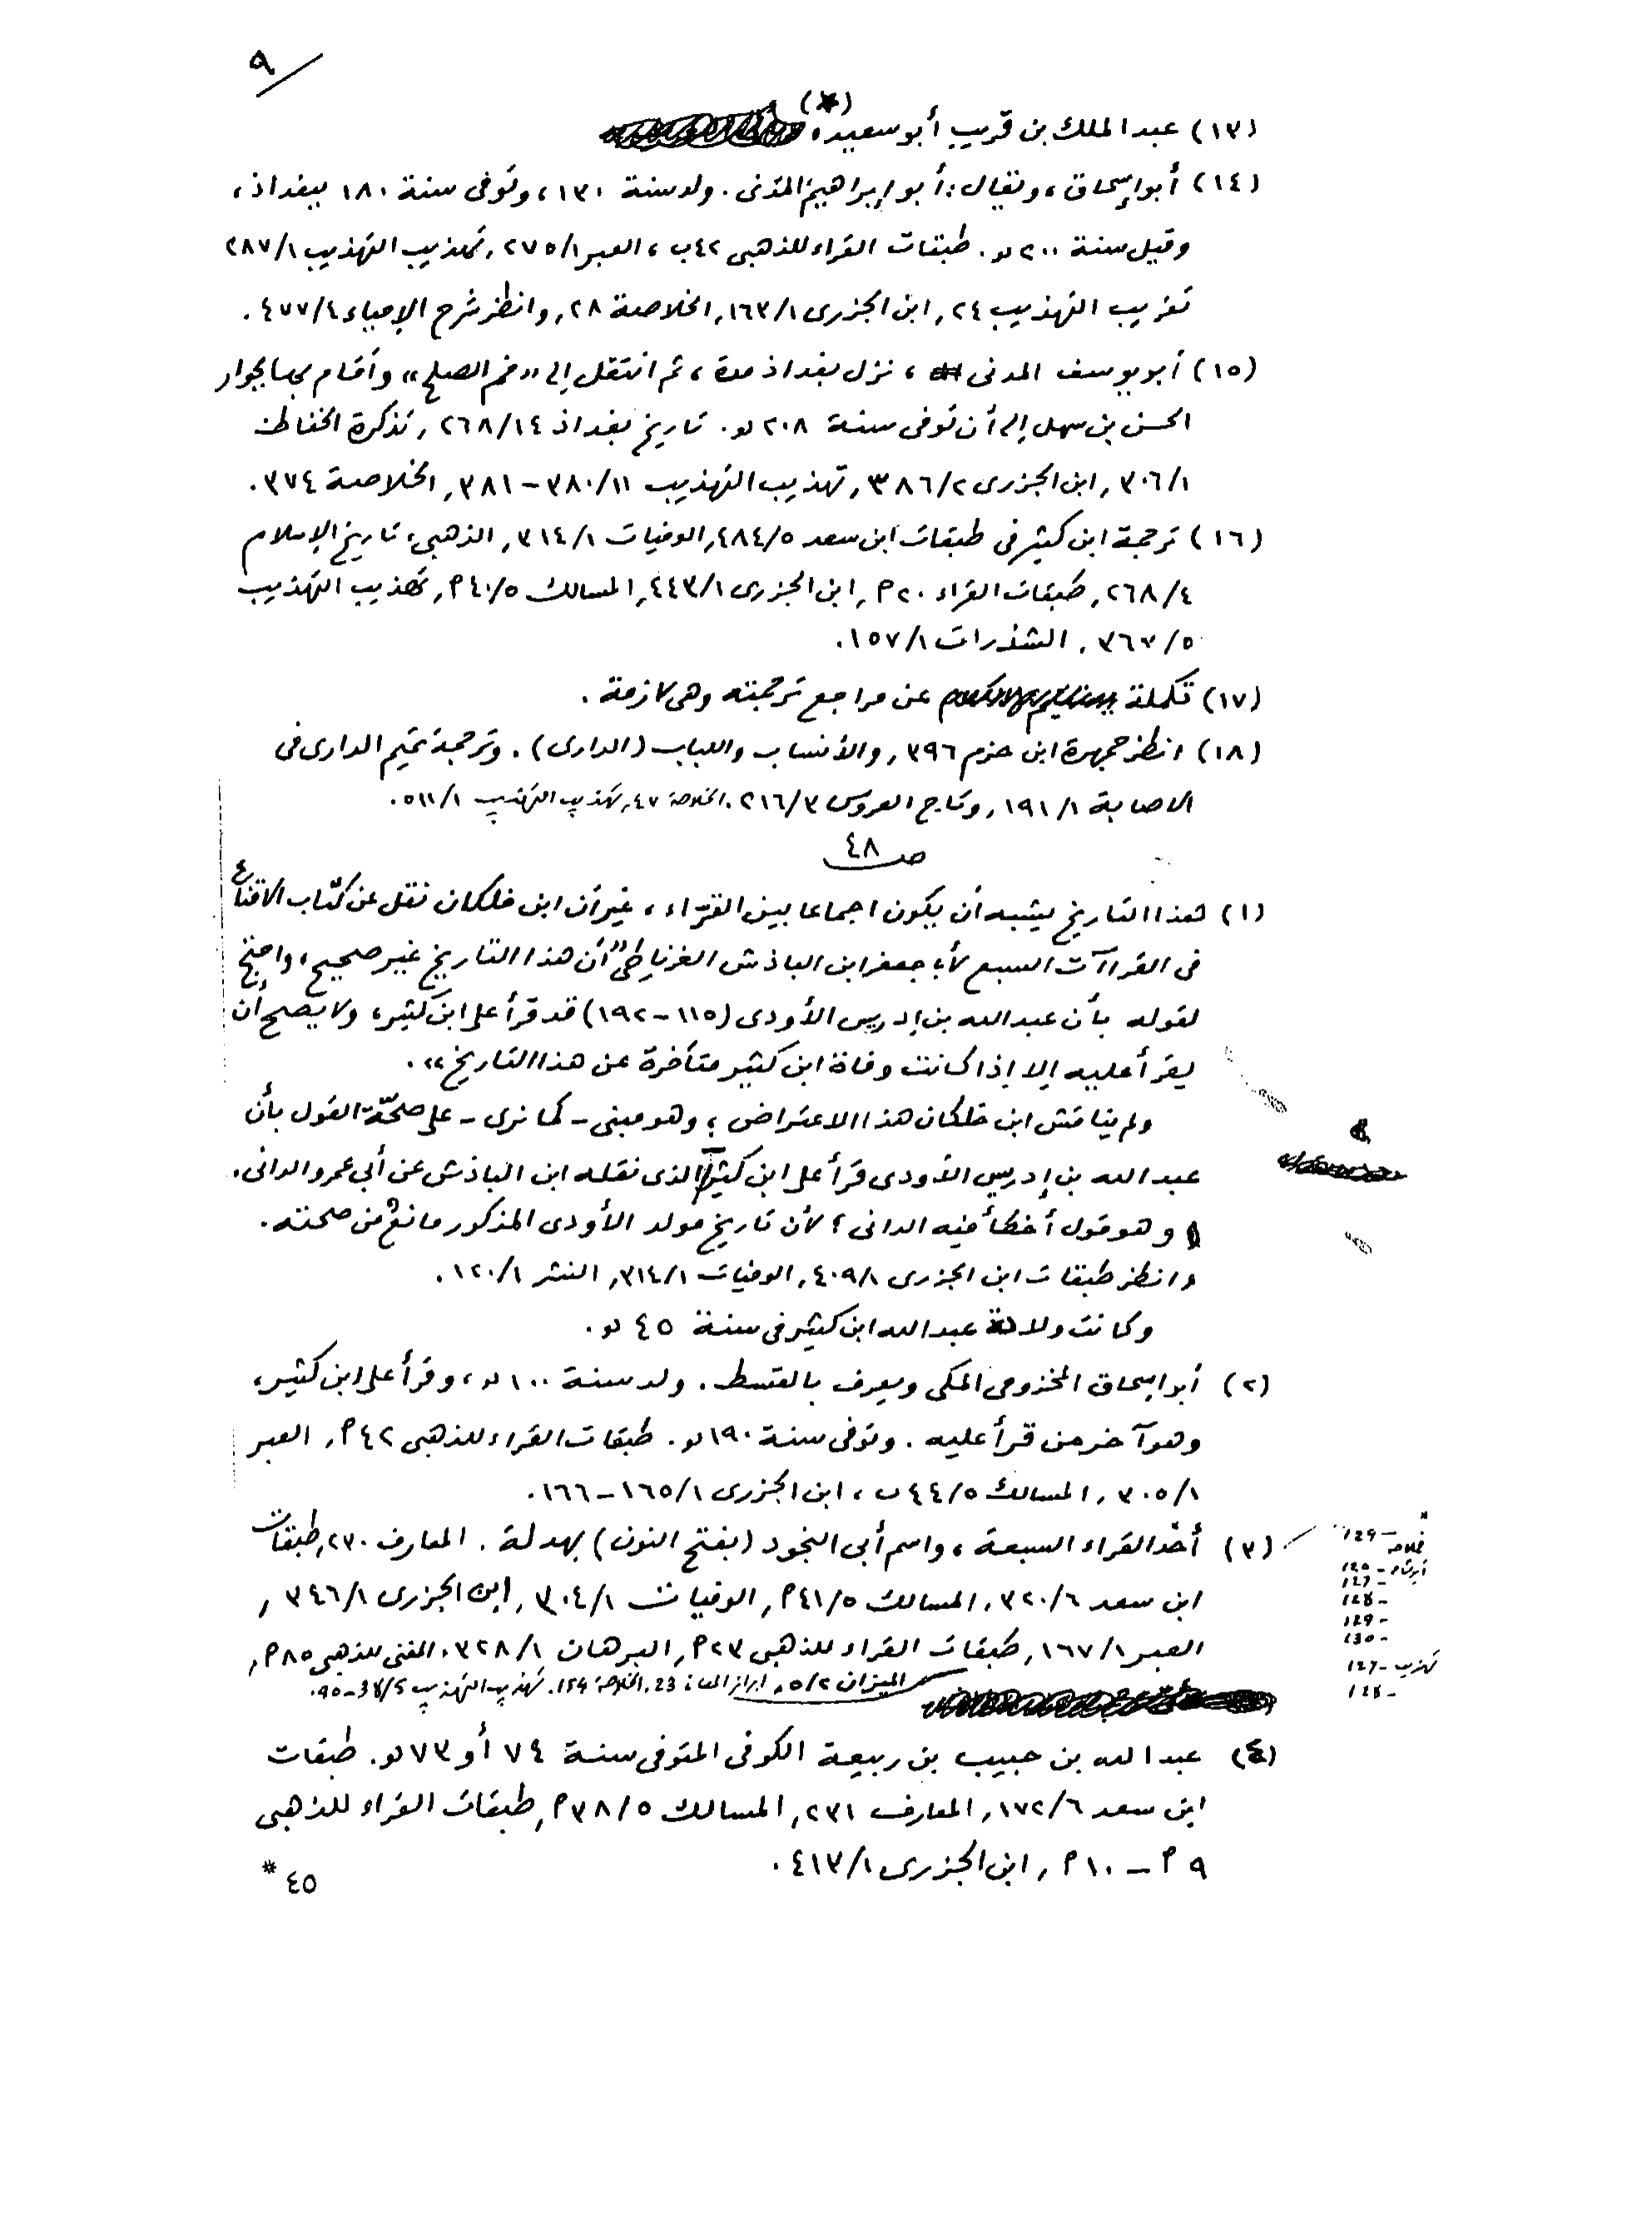 ٩
(*)
(١٣) عبد الملك بن قريب أبو سعيد
(١٤) أبو إسحاق، ويقال: أبو إبراهيم المدنى. ولد سنة ١٣٠، وتوفى سنة ١٨٠ ببغداد،
وقيل سنة ٢٠٠ هـ. طبقات القراء للذهبى ٤٢ب، العبر ٢٧٥/١، تهذيب التهذيب ٢٨٧/١
تقريب التهذيب ٢٤، ابن الجزرى ١٦٣/١، الخلاصة ٢٨، وانظر شرح الإحياء ٤٧٧/٤.
(١٥) أبو يوسف المدنى، نزل بغداد مدة، ثم انتقل إلى «فم الصلح» وأقام بها بجوار
الحسن بن سهل إلى أن توفى سنة ٢٠٨ هـ. تاريخ بغداد ٢٦٨/١٤، تذكرة الحفاظ
٣٠٦/١، ابن الجزرى ٣٨٦/٢، تهذيب التهذيب ٣٨٠/١١ - ٣٨١، الخلاصة ٣٧٤.
(١٦) ترجمة ابن كثير فى طبقات ابن سعد ٤٨٤/٥، الوفيات ٣١٤/١، الذهبى، تاريخ الإسلام
٢٦٨/٤، طبقات القراء ٢٠م، ابن الجزرى ٤٤٣/١، المسالك ٤٠/٥م، تهذيب التهذيب
٣٦٧/٥، الشذرات ١٥٧/١.
(١٧) تكملة عن مراجع ترجمته وهى لازمة.
(١٨) انظر جمهرة ابن حزم ٣٩٦، والأنساب واللباب (الدارى). وترجمة تميم الدارى فى
الاصابة ١٩١/١، وتاج العروس ٢١٦/٣. الخلاصة ٤٧، تهذيب التهذيب ٥١١/١.
صـ ٤٨
(١) هذا التاريخ يشبه أن يكون اجماعا بين القرّاء، غير أن ابن خلكان نقل عن كتاب الاقناع
فى القراآت السبع لأبى جعفر ابن الباذش الغرناطى "أن هذا التاريخ غير صحيح، واحتج
لقوله بأن عبد الله بن إدريس الأودى (١١٥ - ١٩٢) قد قرأ على ابن كثير، ولا يصح أن
يقرأ عليه إلا إذا كانت وفاة ابن كثير متأخرة عن هذا التاريخ».
ولم يناقش ابن خلكان هذا الاعتراض؛ وهو مبنى - كما نرى - على صحّة القول بأن
عبد الله بن إدريس الأودى قرأ على ابن كثير الذى نقله ابن الباذش عن أبى عمرو الدانى،
وهو قول أخطأ فيه الدانى؛ لأن تاريخ مولد الأودى المذكور مانع من صحته.
وانظر طبقات ابن الجزرى ٤٠٩/١، الوفيات ٣١٤/١، النشر ١٢٠/١.
وكانت ولادة عبد الله ابن كثير فى سنة ٤٥ هـ.
(٢) أبو إسحاق المخزومى المكى ويعرف بالقسط. ولد سنة ١٠٠ هـ، وقرأ على ابن كثير،
وهو آخر من قرأ عليه. وتوفى سنة ١٩٠ هـ. طبقات القراء للذهبى ٤٢م، العبر
٣٠٥/١، المسالك ٤٤/٥ب، ابن الجزرى ١٦٥/١ - ١٦٦.
(٣) أحد القراء السبعة، واسم أبى النجود (بفتح النون) بهدلة. المعارف ٢٣٠، طبقات
ابن سعد ٣٢٠/٦، المسالك ٤١/٥م، الوفيات ٣٠٤/١، ابن الجزرى ٣٤٦/١،
العبر ١٦٧/١، طبقات القراء للذهبى ٢٣م، البرهان ٣٢٨/١، المغنى للذهبى ٨٥م،
الميزان ٥/٢، ابراز المعانى 23، الخلاصة 154، تهذيب التهذيب 38/5 - 95.
(٤) عبد الله بن حبيب بن ربيعة الكوفى المتوفى سنة ٧٤ أو ٧٣ هـ. طبقات
ابن سعد ١٧٢/٦، المعارف ٢٣١، المسالك ٣٨/٥م، طبقات القراء للذهبى
٩م - ١٠م، ابن الجزرى ٤١٣/١.
* ٤٥